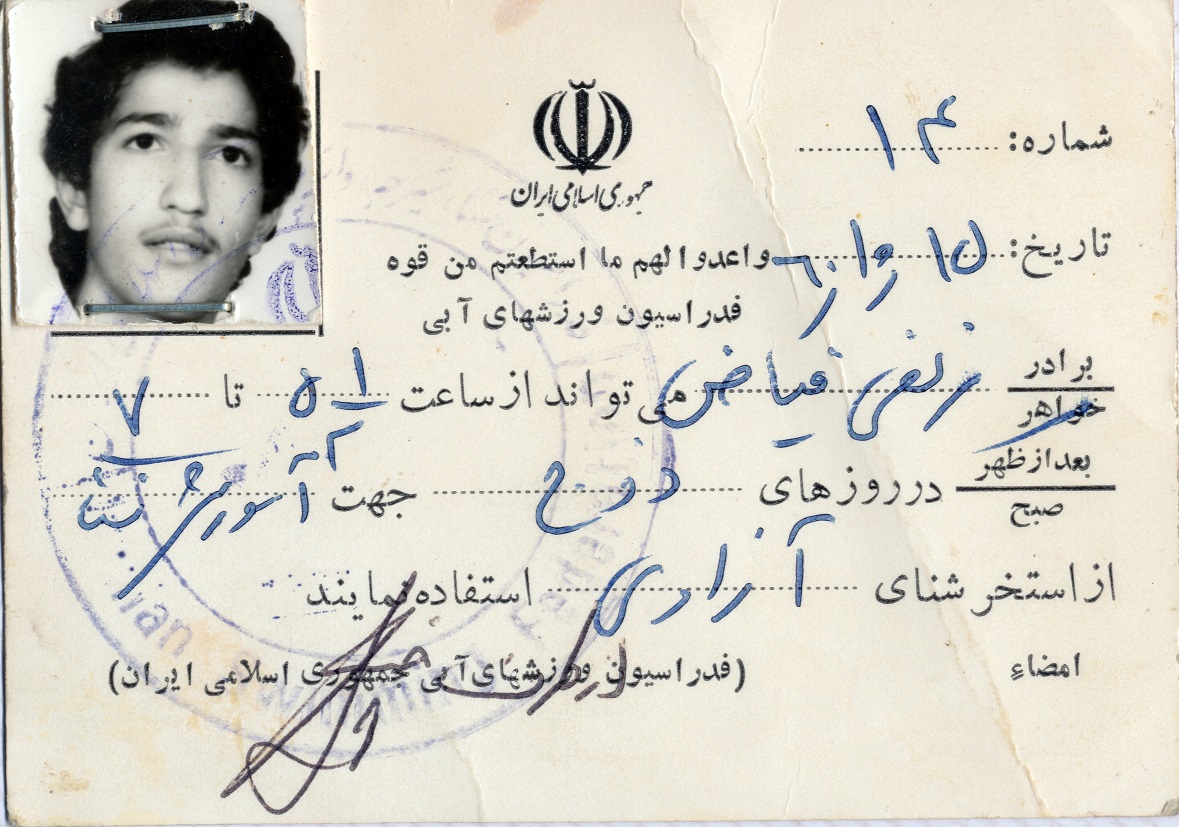 جمهوری اسلامی ایران
شماره: ۱۴
تاریخ: ۱۵
واعدوا لهم ما استطعتم من قوه
فدراسیون ورزشهای آبی
برادر
خواهر
فیاض می تواند از ساعت ۵/۱ تا ۷
بعدازظهر
صبح
در روزهای زوج جهت آموزش شنا
از استخر شنای آزادی استفاده نمایند
امضاء
(فدراسیون ورزشهای آبی جمهوری اسلامی ایران)